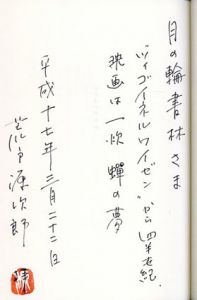 月の輪書林さま
「ツィゴイネルワイゼン」から四半世紀.
映画は一炊 蟬の夢
平成十七年三月二十二日
荒戸源次郎